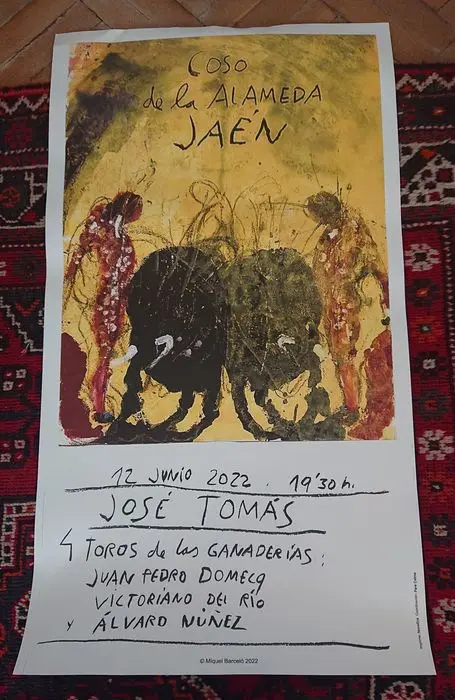 COSO
de la ALAMEDA
JAÉN
12 JUNIO 2022. 19'30 h.
JOSÉ TOMÁS
4 TOROS de las GANADERÍAS:
JUAN PEDRO DOMECQ
VICTORIANO DEL RÍO
y ÁLVARO NÚÑEZ
© Miquel Barceló 2022